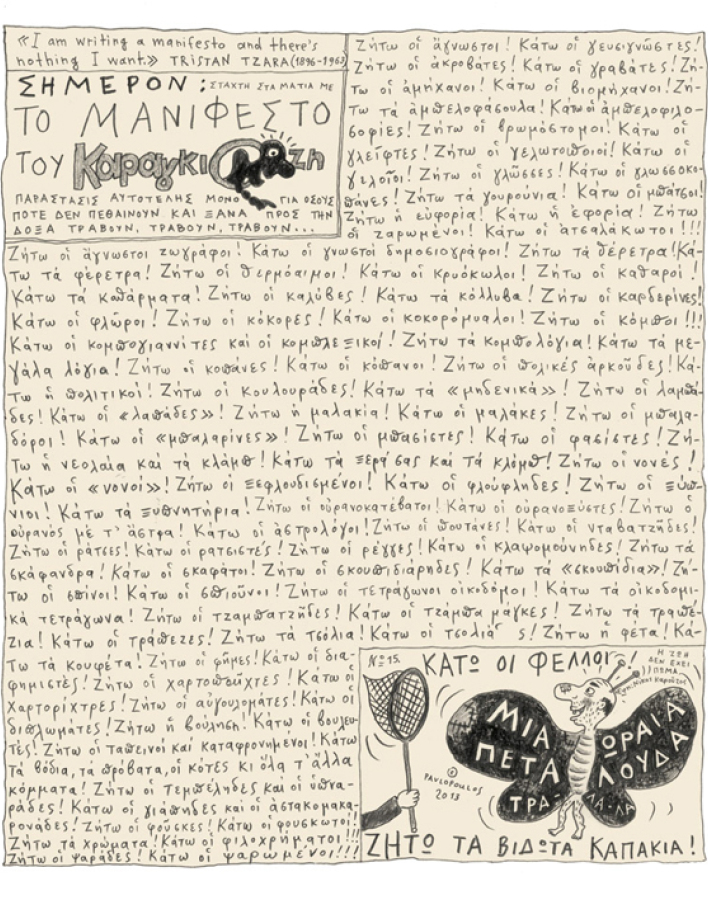 «I am writing a manifesto and there's
nothing I want.» TRISTAN TZARA (1896-1963)
ΣΗΜΕΡΟΝ: ΣΤΑΧΤΗ ΣΤΑ ΜΑΤΙΑ ΜΕ
ΤΟ ΜΑΝΙΦΕΣΤΟ
ΤΟΥ Καραγκιόζη
ΠΑΡΑΣΤΑΣΙΣ ΑΥΤΟΤΕΛΗΣ ΜΟΝΟ ΓΙΑ ΟΣΟΥΣ
ΠΟΤΕ ΔΕΝ ΠΕΘΑΙΝΟΥΝ ΚΑΙ ΞΑΝΑ ΠΡΟΣ ΤΗΝ
ΔΟΞΑ ΤΡΑΒΟΥΝ, ΤΡΑΒΟΥΝ, ΤΡΑΒΟΥΝ...
Ζήτω οἱ ἄγνωστοι! Κάτω οἱ γευσιγνῶστες!
Ζήτω οἱ ἀκροβάτες! Κάτω οἱ γραβάτες! Ζή-
τω οἱ ἀμήχανοι! Κάτω οἱ βιομήχανοι! Ζή-
τω τά ἀμπελοφάσουλα! Κάτω οἱ ἀμπελοφιλο-
σοφίες! Ζήτω οἱ βρωμόστομοι! Κάτω οἱ
γλεῖφτες! Ζήτω οἱ γελωτοποιοί! Κάτω οἱ
γελοῖοι! Ζήτω οἱ γλῶσσες! Κάτω οἱ γλωσσοκο-
πάνες! Ζήτω τά γουρούνια! Κάτω οἱ μπάτσοι!
Ζήτω ἡ εὐφορία! Κάτω ἡ ἐφορία! Ζήτω
οἱ ζαρωμένοι! Κάτω οἱ ἀτσαλάκωτοι!!!
Ζήτω οἱ ἄγνωστοι ζωγράφοι! Κάτω οἱ γνωστοί δημοσιογράφοι! Ζήτω τά θέρετρα! Κά-
τω τά φέρετρα! Ζήτω οἱ θερμόαιμοι! Κάτω οἱ κρυόκωλοι! Ζήτω οἱ καθαροί!
Κάτω τά καθάρματα! Ζήτω οἱ καλύβες! Κάτω τά κόλλυβα! Ζήτω οἱ καρδερίνες!
Κάτω οἱ φλῶροι! Ζήτω οἱ κόκορες! Κάτω οἱ κοκορόμυαλοι! Ζήτω οἱ κόμποι!!!
Κάτω οἱ κομπογιαννίτες καί οἱ κομπλεξικοί! Ζήτω τά κομπολόγια! Κάτω τά με-
γάλα λόγια! Ζήτω οἱ κοπάνες! Κάτω οἱ κόπανοι! Ζήτω οἱ πολικές ἀρκοῦδες! Κά-
τω ἡ πολιτική! Ζήτω οἱ κουλουράδες! Κάτω τά «μηδενικά»! Ζήτω οἱ λαμπά-
δες! Κάτω οἱ «λαπάδες»! Ζήτω ἡ μαλακία! Κάτω οἱ μαλάκες! Ζήτω οἱ μπαλα-
δόροι! Κάτω οἱ «μπαλαρίνες»! Ζήτω οἱ μπασίστες! Κάτω οἱ φασίστες! Ζή-
τω ἡ νεολαία καί τά κλάμπ! Κάτω τά ξερά σας καί τά κλόμπ! Ζήτω οἱ νονές!
Κάτω οἱ «νονοί»! Ζήτω οἱ ξεφλουδισμένοι! Κάτω οἱ φλούφληδες! Ζήτω οἱ ξύπ-
νιοι! Κάτω τά ξυπνητήρια! Ζήτω οἱ οὐρανοκατέβατοι! Κάτω οἱ οὐρανοξύστες! Ζήτω ὁ
οὐρανός μέ τ' ἄστρα! Κάτω οἱ ἀστρολόγοι! Ζήτω οἱ πουτάνες! Κάτω οἱ νταβατζῆδες!
Ζήτω οἱ ράτσες! Κάτω οἱ ρατσιστές! Ζήτω οἱ ρέγγες! Κάτω οἱ κλαψομούνηδες! Ζήτω τά
σκάφανδρα! Κάτω οἱ σκαφάτοι! Ζήτω οἱ σκουπιδιάρηδες! Κάτω τά «σκουπίδια»! Ζή-
τω οἱ σπίνοι! Κάτω οἱ σπιοῦνοι! Ζήτω οἱ τετράγωνοι οἰκοδόμοι! Κάτω τά οἰκοδομι-
κά τετράγωνα! Ζήτω οἱ τζαμπατζῆδες! Κάτω οἱ τζάμπα μάγκες! Ζήτω τά τραπέ-
ζια! Κάτω οἱ τράπεζες! Ζήτω τά τσόλια! Κάτω οἱ τσολιάδες! Ζήτω ἡ φέτα! Κά-
τω τά κουφέτα! Ζήτω οἱ φῆμες! Κάτω οἱ δια-
φημιστές! Ζήτω οἱ χαρτοπαῖχτες! Κάτω οἱ
χαρτορίχτρες! Ζήτω οἱ αὐγουλομάτες! Κάτω οἱ
διπλωμάτες! Ζήτω ἡ βούληση! Κάτω οἱ βουλευ-
τές! Ζήτω οἱ ταπεινοί καί καταφρονημένοι! Κάτω
τά βόδια, τά πρόβατα, οἱ κότες κι ὅλα τ' ἄλλα
κόμματα! Ζήτω οἱ τεμπέληδες καί οἱ ὑπνα-
ράδες! Κάτω οἱ γιάπηδες καί οἱ ἀστακομακα-
ρονάδες! Ζήτω οἱ φοῦσκες! Κάτω οἱ φουσκωτοί!
Ζήτω τά χρώματα! Κάτω οἱ φιλοχρήματοι!!!
Ζήτω οἱ ψαράδες! Κάτω οἱ ψαρωμένοι!!!
Νο 15.
ΚΑΤΩ ΟΙ ΦΕΛΛΟΙ!
Η ΖΩΗ
ΔΕΝ ΕΧΕΙ
ΠΩΜΑ
ΜΙΑ ΩΡΑΙΑ
ΠΕΤΑΛΟΥΔΑ
ΤΡΑ-ΛΑ-ΛΑ
© PAVLOPOULOS
2013
ΖΗΤΩ ΤΑ ΒΙΔΩΤΑ ΚΑΠΑΚΙΑ!